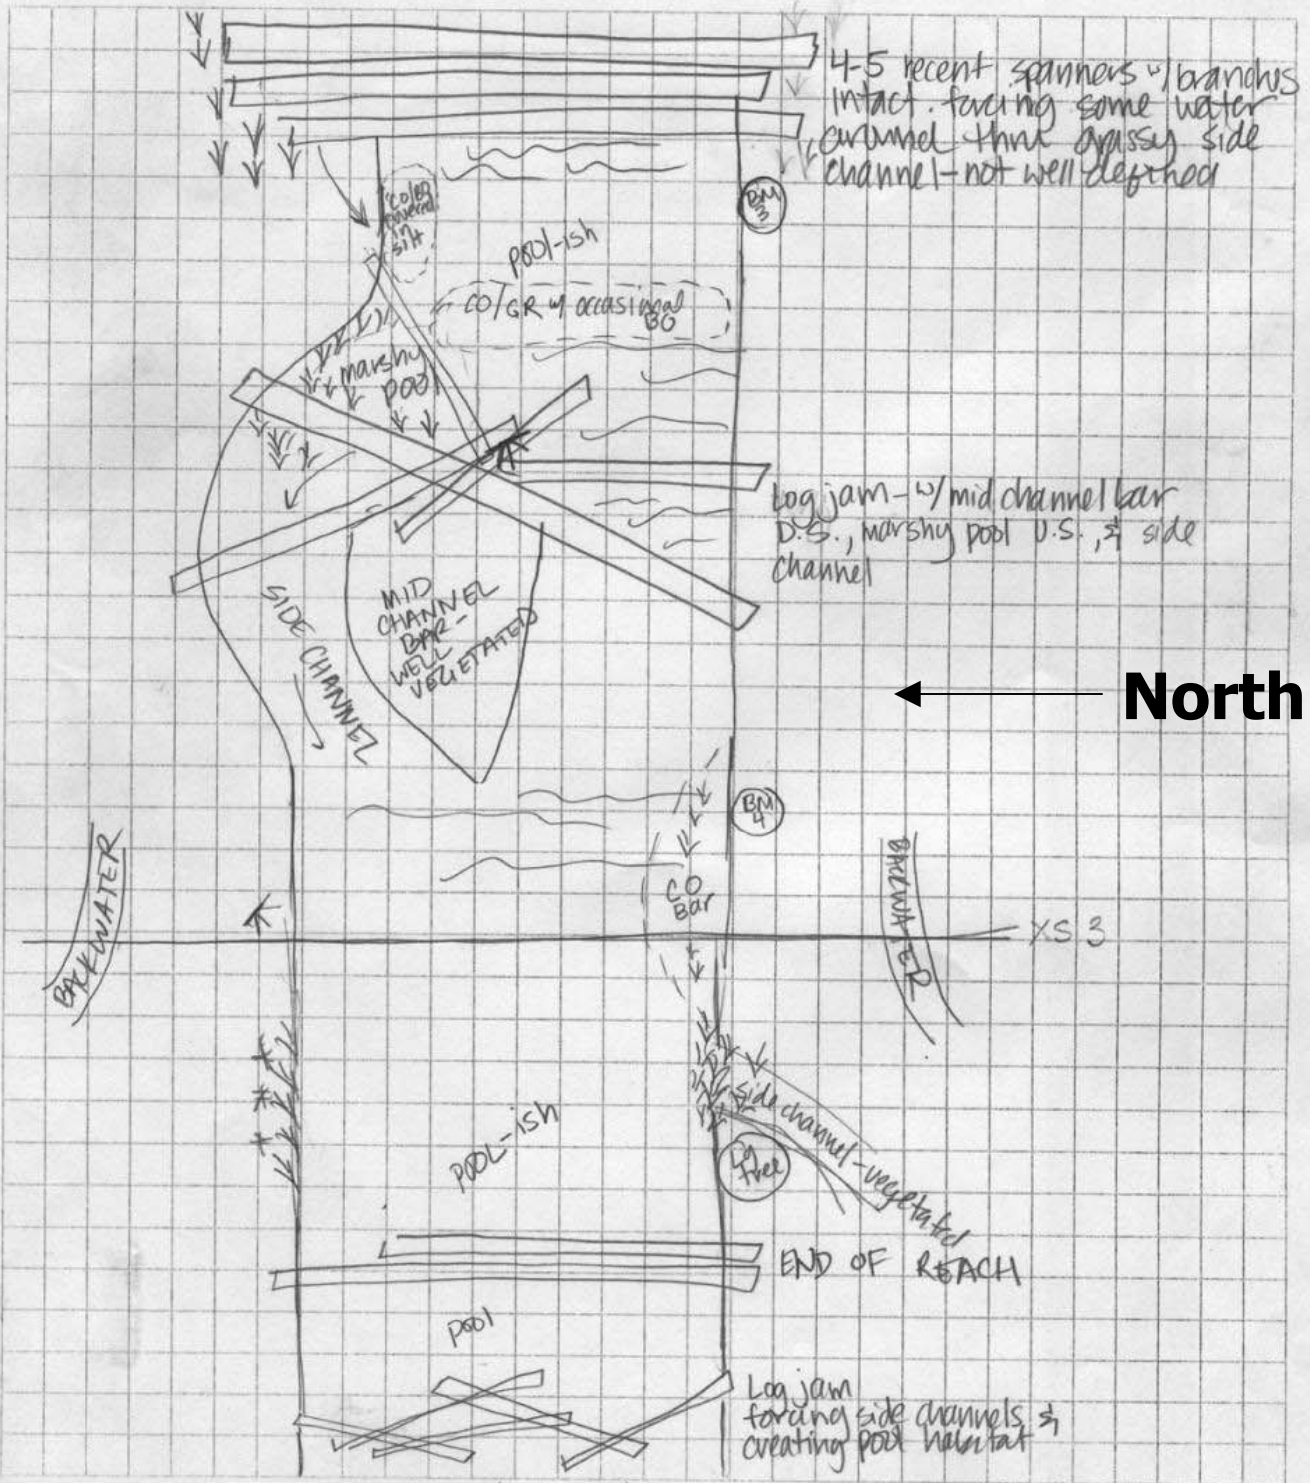 4-5 recent spanners w/branches
intact. forcing some water
around thru grassy side
channel-not well defined
CO/BO
covered
in
silt
BM
3
pool-ish
CO/GR w/ occasional
BO
marshy
pool
Log jam- w/mid channel bar
D.S., marshy pool U.S., & side
channel
MID
CHANNEL
BAR-
WELL
VEGETATED
SIDE CHANNEL
North
BM
4
CO
Bar
BACKWATER
BACKWATER
XS 3
side channel-vegetated
POOL-ish
Tree
END OF REACH
pool
Log jam
forcing side channels &
creating pool habitat